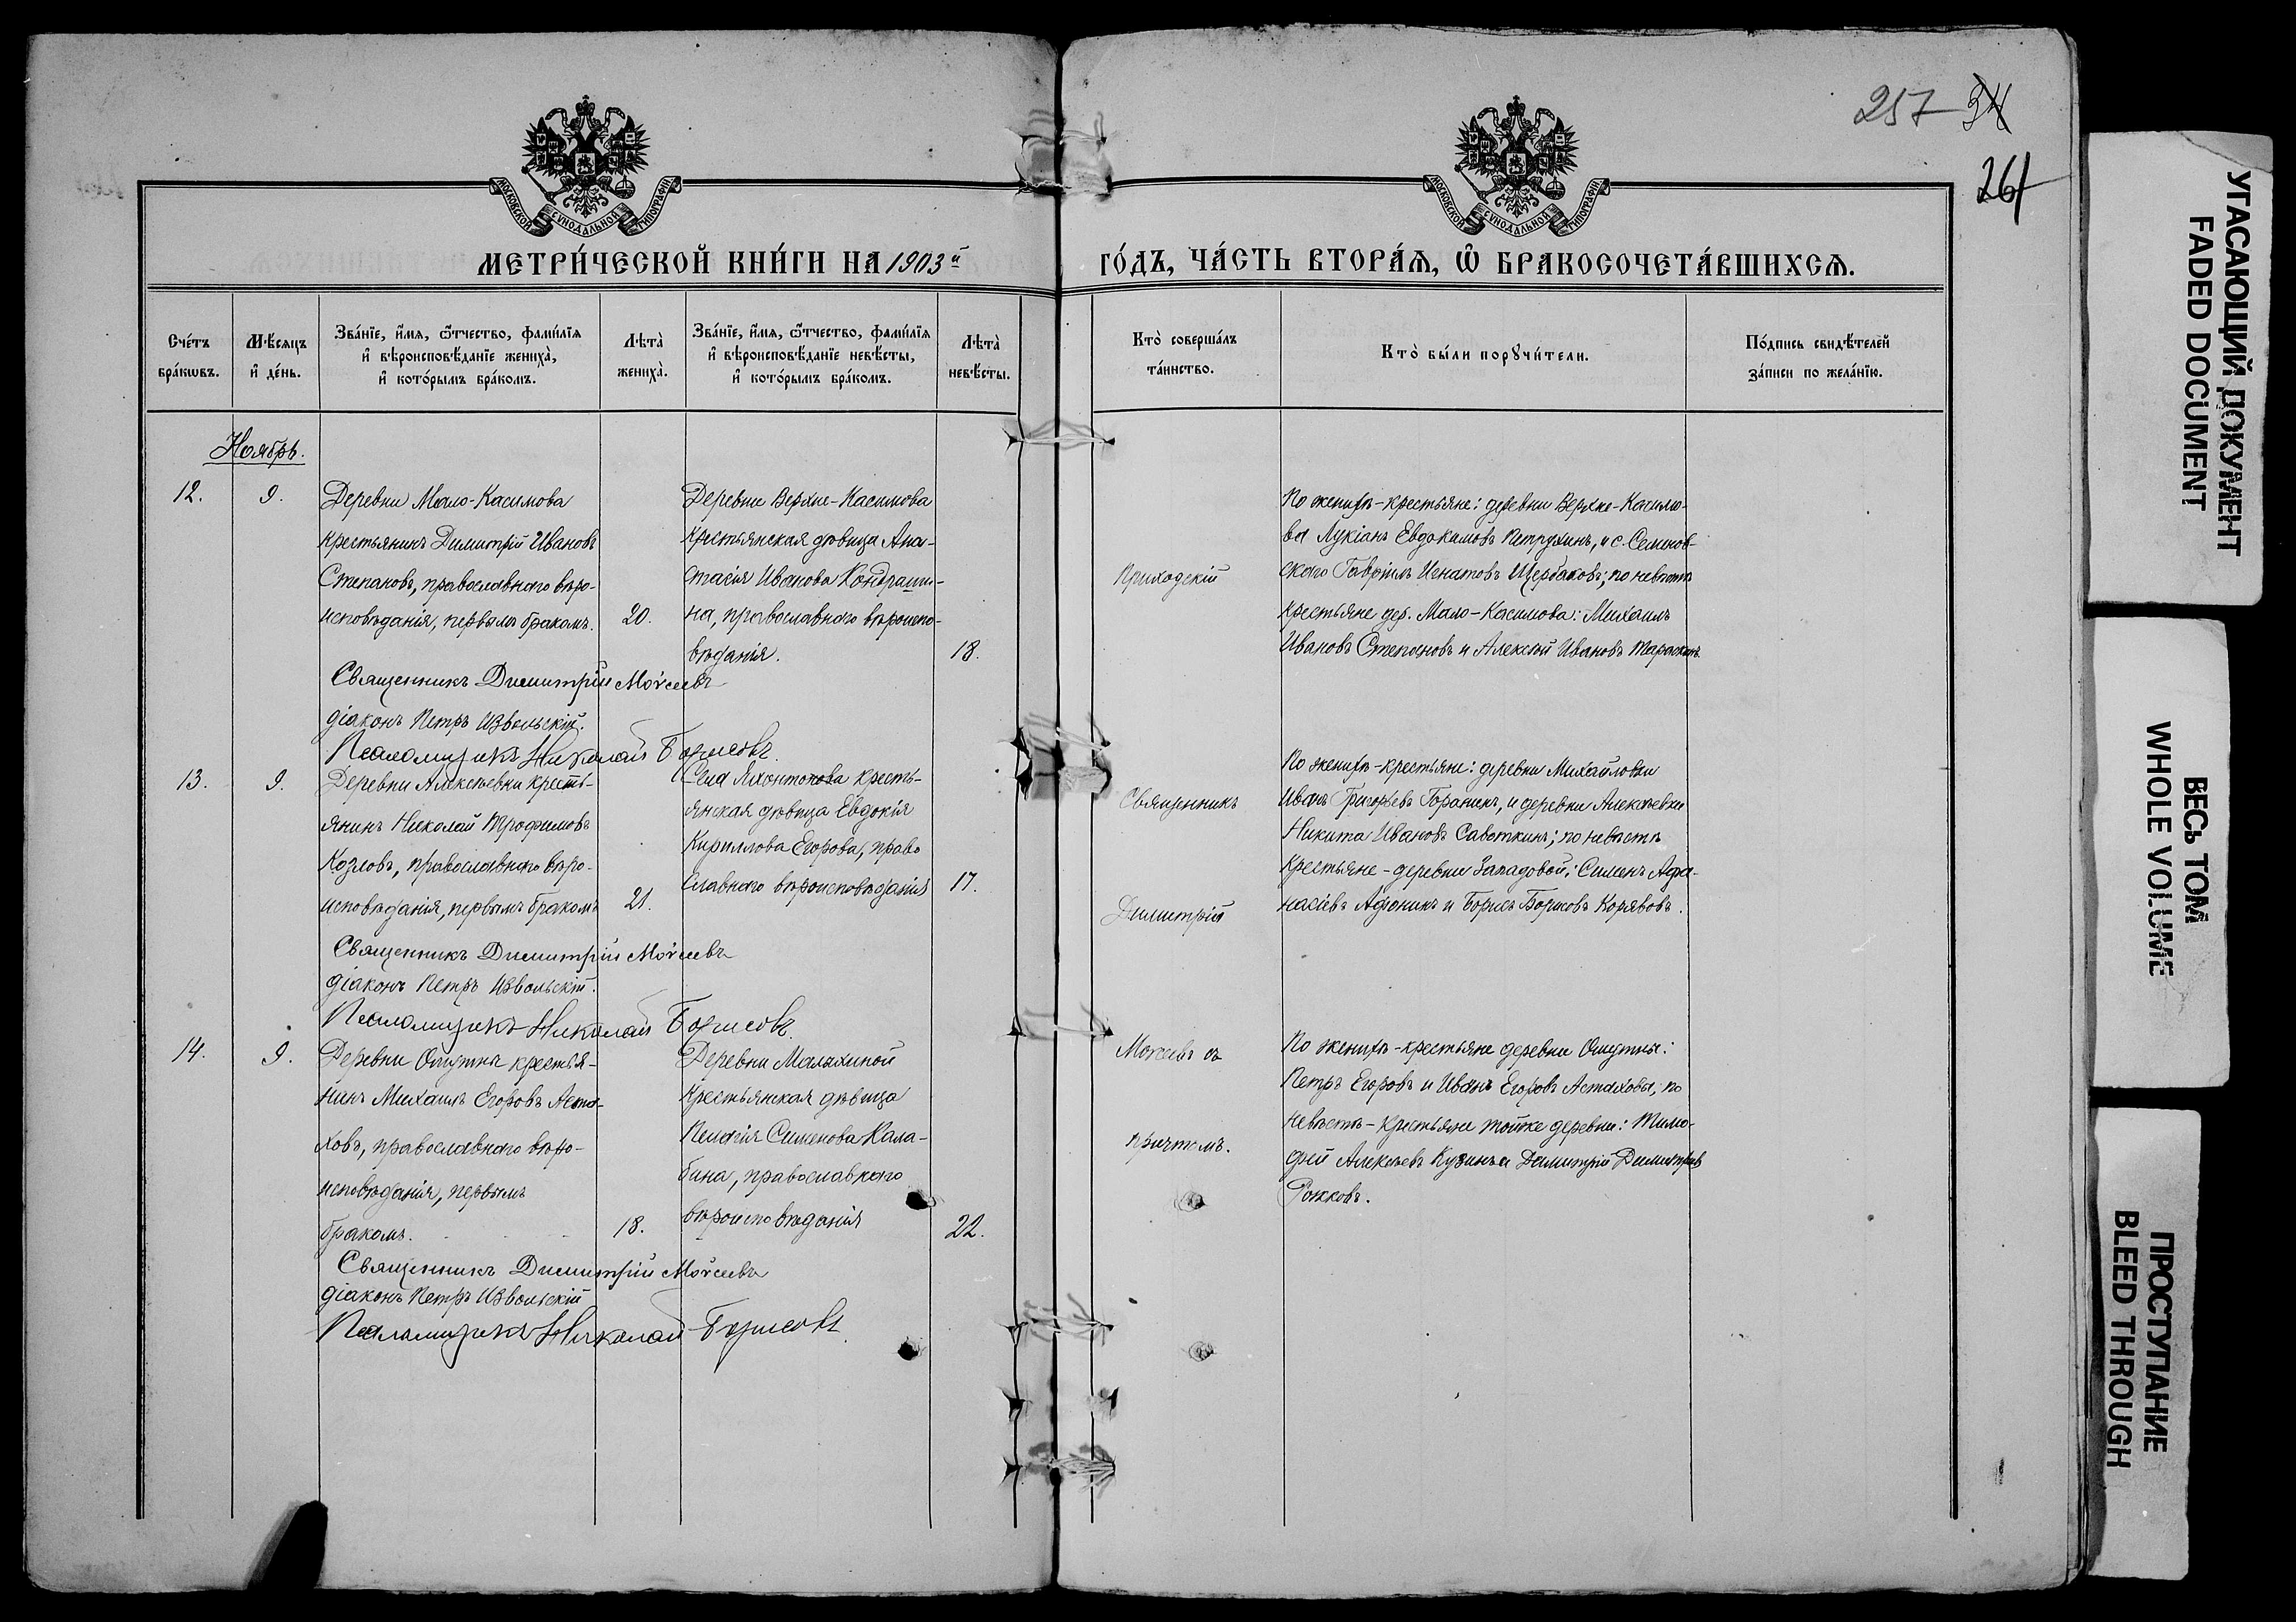 257 34
261
МОСКОВСКОЙ СѴНОДАЛЬНОЙ ТИПОГРАФІИ
МОСКОВСКОЙ СѴНОДАЛЬНОЙ ТИПОГРАФІИ
МЕТРИ́ЧЕСКОЙ КНИ́ГИ НА 1903й
ГО́ДЪ, ЧА́СТЬ ВТОРА́Ѧ, Ѽ БРАКОСОЧЕТА́ВШИХСѦ.
Сче́тъ
бра́кѡвъ.
Мѣ́сяцъ
и҆ де́нь.
Зва́нїе, и҆́мѧ, ѻ҆́тчество, фами́лїѧ
и҆ вѣроисповѣ́данїе жениха̀,
и҆ кото́рымъ бра́комъ.
Лѣта̀
жениха̀.
Зва́нїе, и҆́мѧ, ѻ҆́тчество, фами́лїѧ
и҆ вѣроисповѣ́данїе невѣ́сты,
и҆ кото́рымъ бра́комъ.
Лѣта̀
невѣ́сты.
Кто̀ соверша́лъ
та́инство.
Кто̀ бы́ли порꙋчи́тели.
По́дпись свидѣ́телей
за́писи по жела́нїю.
Ноябрь.
12.
9.
Деревни Мало-Касимова
крестьянинъ Димитрій Ивановъ
Степановъ, православнаго вѣро-
исповѣданія, первымъ бракомъ.
20.
Деревни Верхне-Касимова
крестьянская дѣвица Ана-
стасія Иванова Кондраши-
на, православнаго вѣроиспо-
вѣданія.
18.
Приходскій
По женихѣ-крестьяне: деревни Верхне-Касимо-
ва Лукіанъ Евдокимовъ Петрухинъ, и с. Семенов-
скаго Гавріилъ Игнатовъ Щербаковъ; по невѣстѣ
крестьяне дер. Мало-Касимова: Михаилъ
Ивановъ Степановъ и Алексѣй Ивановъ Тараскинъ.
Священникъ Димитрій Моѵсеевъ
діаконъ Петръ Извольскій.
Псаломщикъ Николай Борисовъ.
13.
9.
Деревни Алексѣевки кресть-
янинъ Николай Трофимовъ
Козловъ, православнаго вѣро-
исповѣданія, первымъ бракомъ
21.
Села Яхонтова кресть-
янская дѣвица Евдокія
Кириллова Егорова, право
славнаго вѣроисповѣданія
17.
Священникъ
Димитрій
По женихѣ-крестьяне: деревни Михайловки
Иванъ Григорьевъ Горанинъ, и деревни Алексѣевки
Никита Ивановъ Савоткинъ; по невѣстѣ
крестьяне-деревни Западовой: Симеонъ Афа-
насіевъ Афонинъ и Борисъ Борисовъ Корявовъ.
Священникъ Димитрій Моѵсеевъ
діаконъ Петръ Извольскій.
Псаломщикъ Николай Борисовъ.
14.
9.
Деревни Ошутка крестья-
нинъ Михаилъ Егоровъ Аста-
ховъ, православнаго вѣро-
исповѣданія, первымъ
бракомъ.
18.
Деревни Малахиной
крестьянская дѣвица
Пелагія Симеонова Кала-
бина, православнаго
вѣроисповѣданія
22.
Моѵсеевъ съ
причтомъ.
По женихѣ-крестьяне деревни Ошутки:
Петръ Егоровъ и Иванъ Егоровъ Астаховы; по
невѣстѣ-крестьяне тойже деревни: Тимо-
фей Алексѣевъ Кузинъ и Димитрій Димитріев
Рожковъ.
Священникъ Димитрій Моѵсеевъ
діаконъ Петръ Извольскій
Псаломщикъ Николай Борисовъ.
УГАСАЮЩИЙ ДОКУМЕНТ
FADED DOCUMENT
ВЕСЬ ТОМ
WHOLE VOLUME
ПРОСТУПАНИЕ
BLEED THROUGH